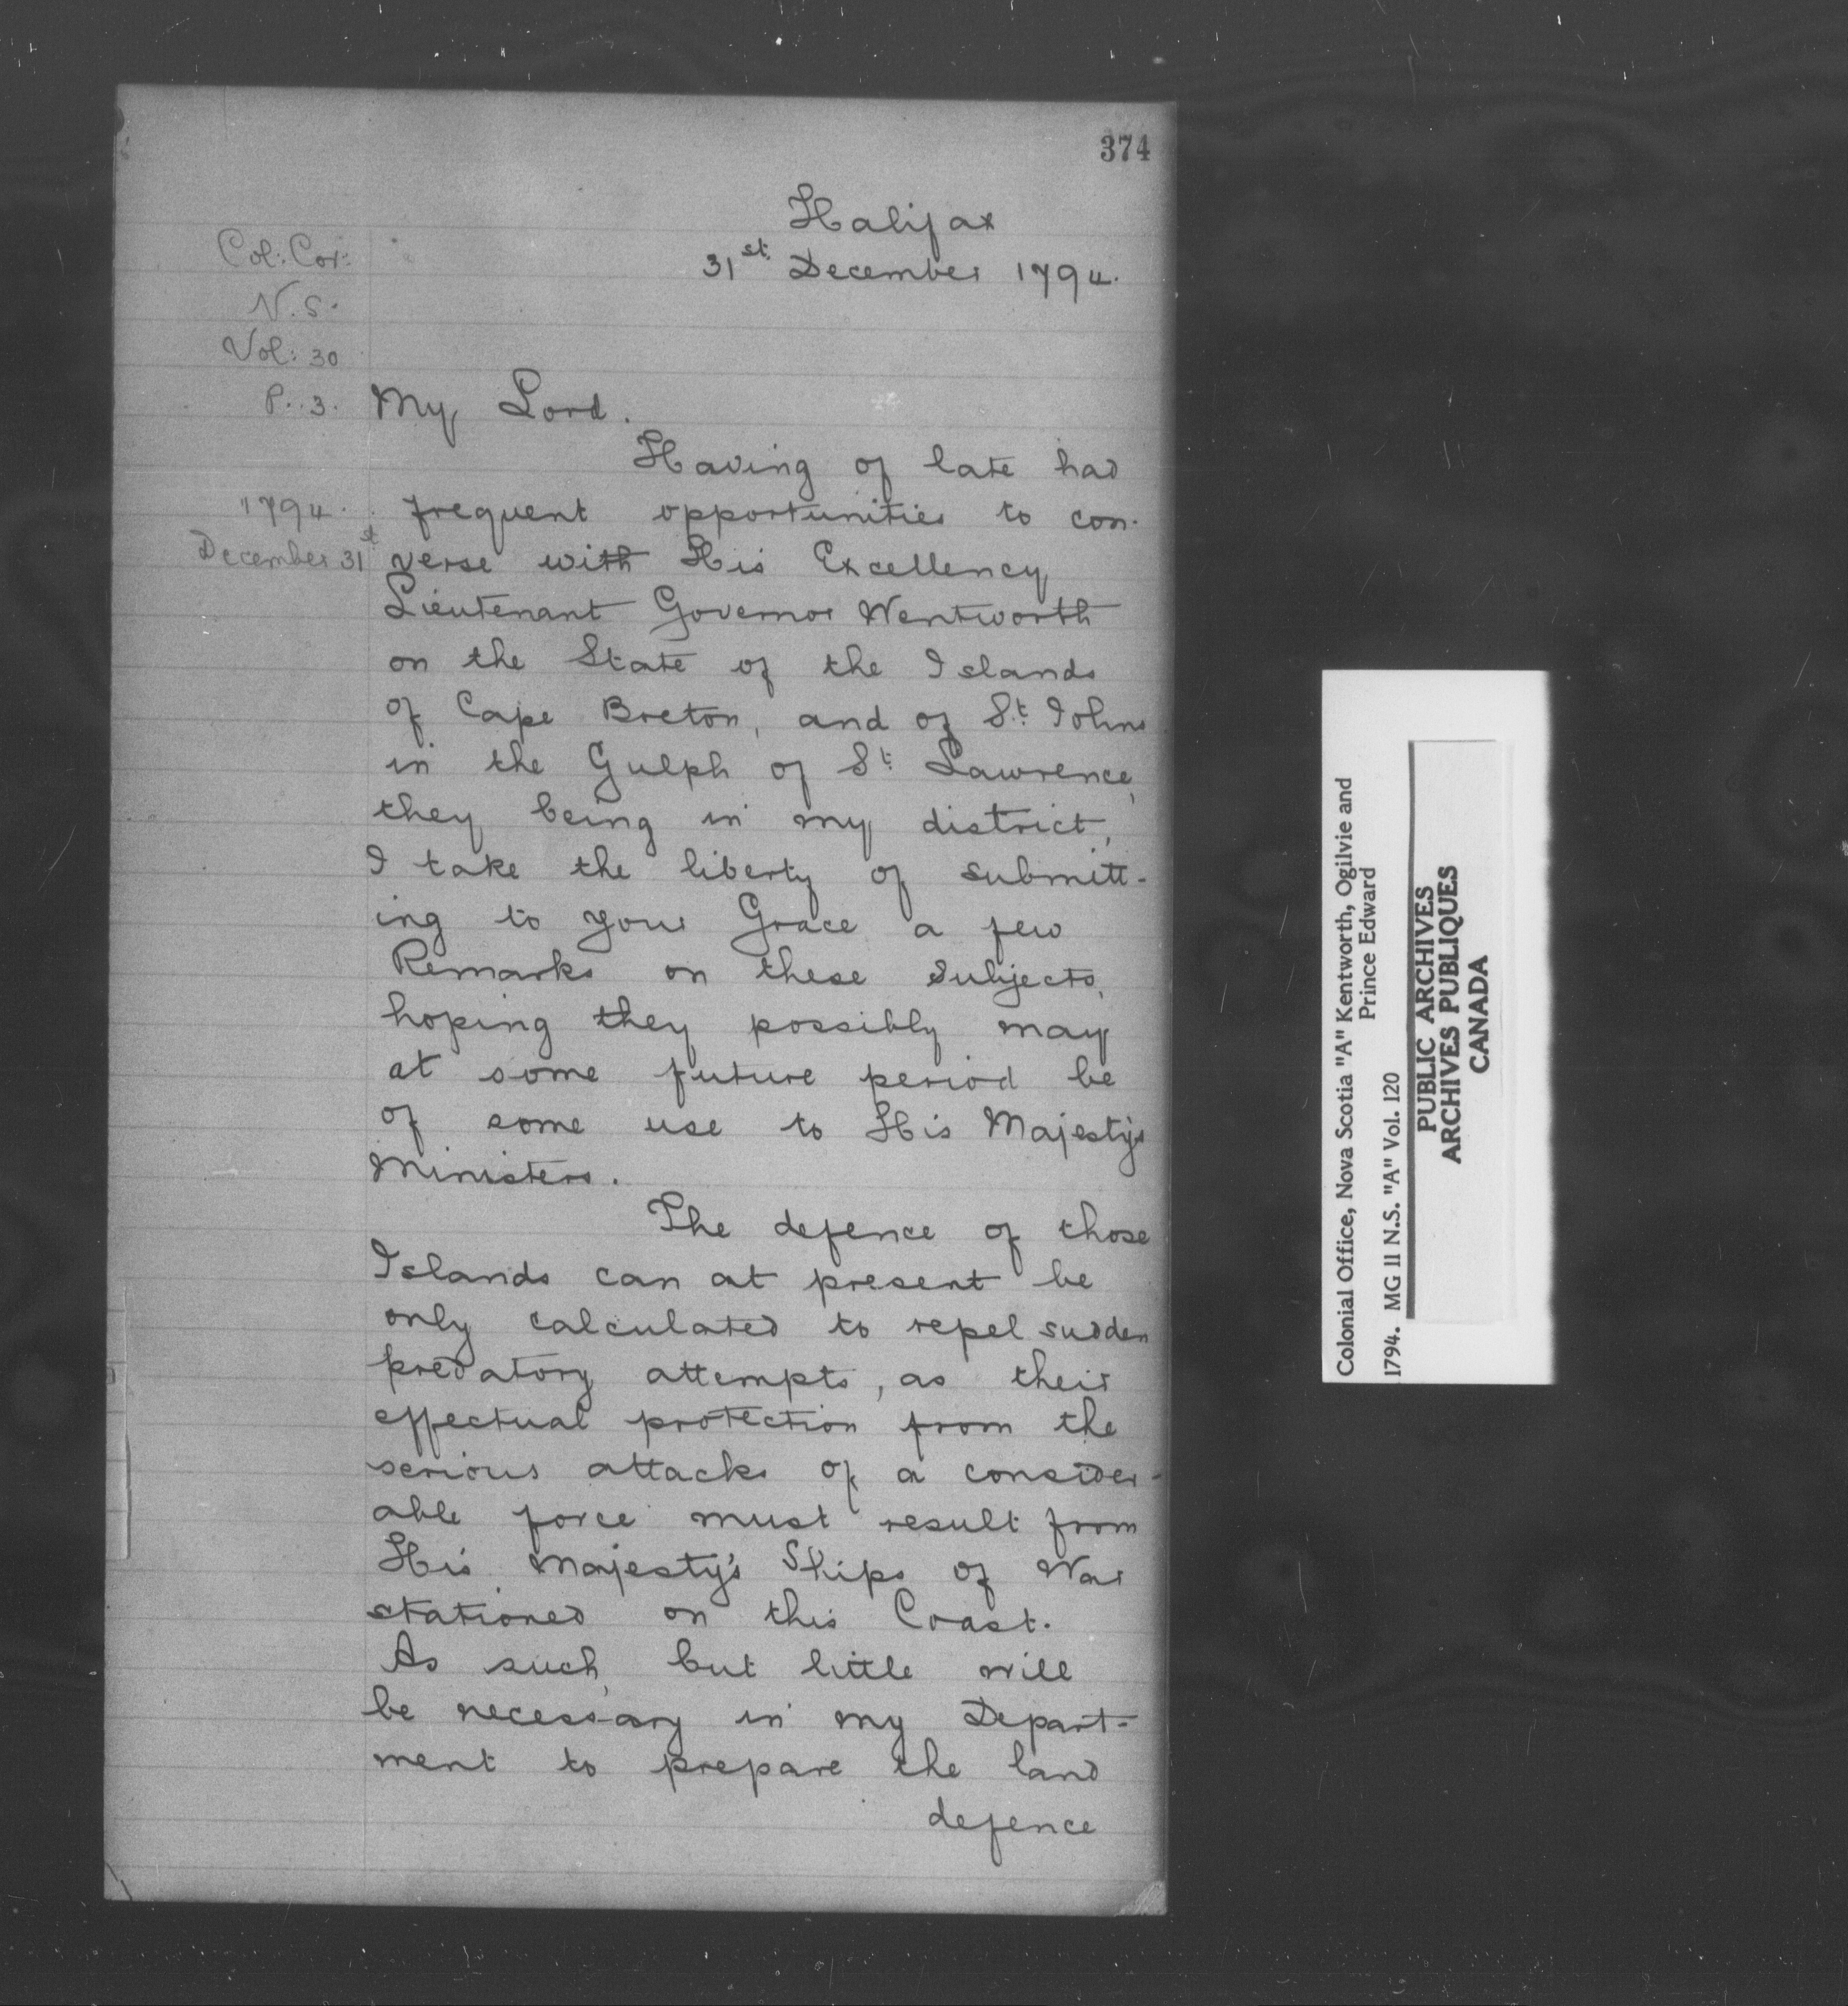 374
Halifax
31st. December 1794.
Col: Cor:
N.S.
Vol: 30
P. 3.
My Lord.
Having of late had
1794.
frequent opportunities to con-
December 31st
verse with His Excellency
Lieutenant Governor Wentworth
on the State of the Islands
of Cape Breton, and of St. Johns
in the Gulph of St. Lawrence,
they being in my district,
I take the liberty of submitt-
ing to your Grace a few
Remarks on these subjects,
hoping they possibly may
at some future period be
of some use to His Majesty's
Ministers.
The defence of those
Islands can at present be
only calculated to repel sudden
predatory attempts, as their
effectual protection from the
serious attacks of a consider-
able force must result from
His Majesty's Ships of War
stationed on this Coast.
As such, but little will
be necessary in my Depart-
ment to prepare the land
defence
Colonial Office, Nova Scotia "A" Kentworth, Ogilvie and
Prince Edward
1794. MG 11 N.S. "A" Vol. 120
PUBLIC ARCHIVES
ARCHIVES PUBLIQUES
CANADA